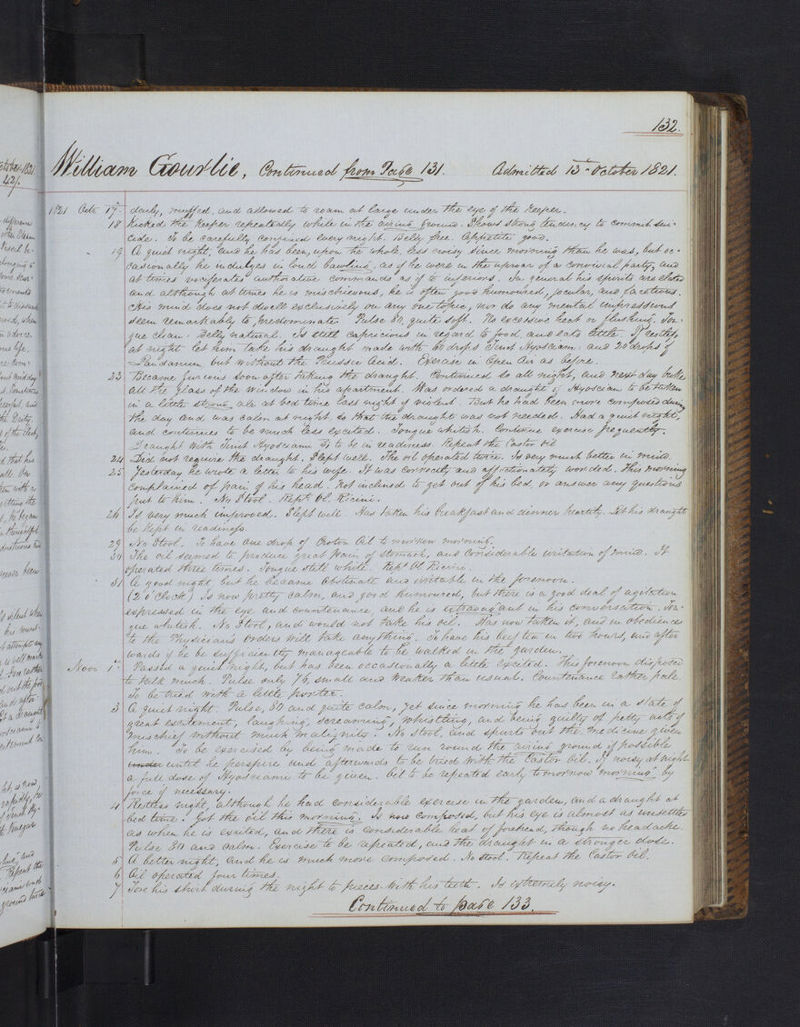 132.
William Gourlie, Continued from Page 131. Admitted 13th October 1821.
1821 Octr 17 daily, muffed, and allowed to roam at large under the eye of the Keeper.
18 Kicked the Keeper repeatedly while in the airing ground. Shows strong tendency to commit sui-
cide. To be carefully confined every night. Belly free. Appetite good.
19 A quiet night, and he has been, upon the whole, less noisy since morning than he was, but oc-
casionally he indulges in loud bawling, as if he were in the uproar of a convivial party, and
at times vociferates authorative commands as if to inferiors. In general his spirits are elated
and although at times he is mischievous, he is often good humoured, jocular, and facetious.
His mind does not dwell exclusively on any one topic, nor do any mental impressions
seem remarkably to predominate. Pulse 80, quite soft. No excessive heat or flushing. Ton-
gue clean. Belly natural. Is still capricious in regard to food, and eats little. If restless
at night let him take his draught made with 60 drops Tinct Hyosciam. and 20 drops of
Laudanum but without the Prussic Acid. Exercise in Open Air as before.
23 Became furious soon after taking the draught. Continued so all night, and next day broke
all the glass of the window in his apartment. Was ordered a draught of Hyosciam to be taken
in a little strong ale at bed time last night if violent. But he had been more composed during
the day and was calm at night, so that the draught was not needed. Had a quiet night,
and continues to be much less excited. Tongue whitish. Continue exercise frequently.
Draught with Tinct Hyosciam to be in readiness. Repeat the Castor Oil
24 Did not require the draught. Slept well. The oil operated twice. Is very much better in mind.
25 Yesterday he wrote a letter to his wife. It was correctly and affectionately worded. This morning
complained of pain of his head. Not inclined to get out of his bed, or answer any questions
put to him. No Stool. Rept Ol. Ricini.
26 Is very much improved. Slept well. Has taken his breakfast and dinner heartily. Let his draught
be kept in readiness.
29 No Stool. To have one drop of Croton Oil to morrow morning.
30 The oil seemed to produce great pain of stomach, and considerable irritation of mind. It
operated three times. Tongue still white. Rept Ol Ricini.
31 A good night, but he became obstinate and irritable in the forenoon.
(2 o'clock) Is now pretty calm, and good humoured, but there is a good deal of agitation
expressed in the eye and countenance, and he is extravagant in his conversation. Ton-
gue whitish. No Stool, and would not take his oil. Has now taken it, and in obedience
to the Physicians orders will take anything. To have his beef tea in two hours, and after
wards if he be sufficiently manageable to be walked in the garden.
Novr 1st Passed a quiet night, but has been occasionally a little excited. This forenoon disposed
to talk much. Pulse only 76, small and weaker than usual. Countenance rather pale.
To be tried with a little porter.
3 A quiet night. Pulse, 80 and quite calm, yet since morning he has been in a state of
great excitement, laughing, screaming, whistling, and being guilty of petty acts of
mischief without much malignity. No stool, and spurts out the medicine given
him. To be exercised by being made to run round the airing ground if possible
until he perspire and afterwards to be tried with the Castor Oil. If noisy at night
a full dose of Hyosciami to be given. Oil to be repeated early tomorrow morning by
force if necessary.
4 Restless night, although he had considerable exercise in the garden, and a draught at
bed time. Got the oil this morning. Is now composed, but his eye is almost as unsettled
as when he is excited, and there is considerable heat of forehead, though no headache.
Pulse 80 and calm. Exercise to be repeated, and the draught in a stronger dose.
5 A better night, and he is much more composed. No stool. Repeat the Castor Oil.
6 Oil operated four times.
7 Tore his shirt during the night to pieces with his teeth. Is extremely noisy.
Continued to page 133.